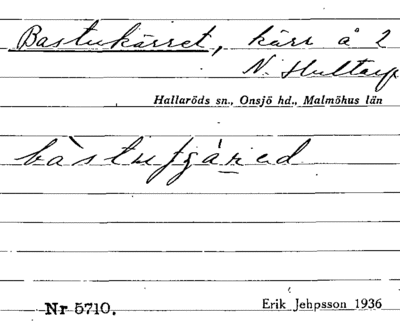 Bastukärret, kärr å 2
N. Hultarp
Hallaröds sn., Onsjö hd., Malmöhus län
Nr 5710.
Erik Jehpsson 1936